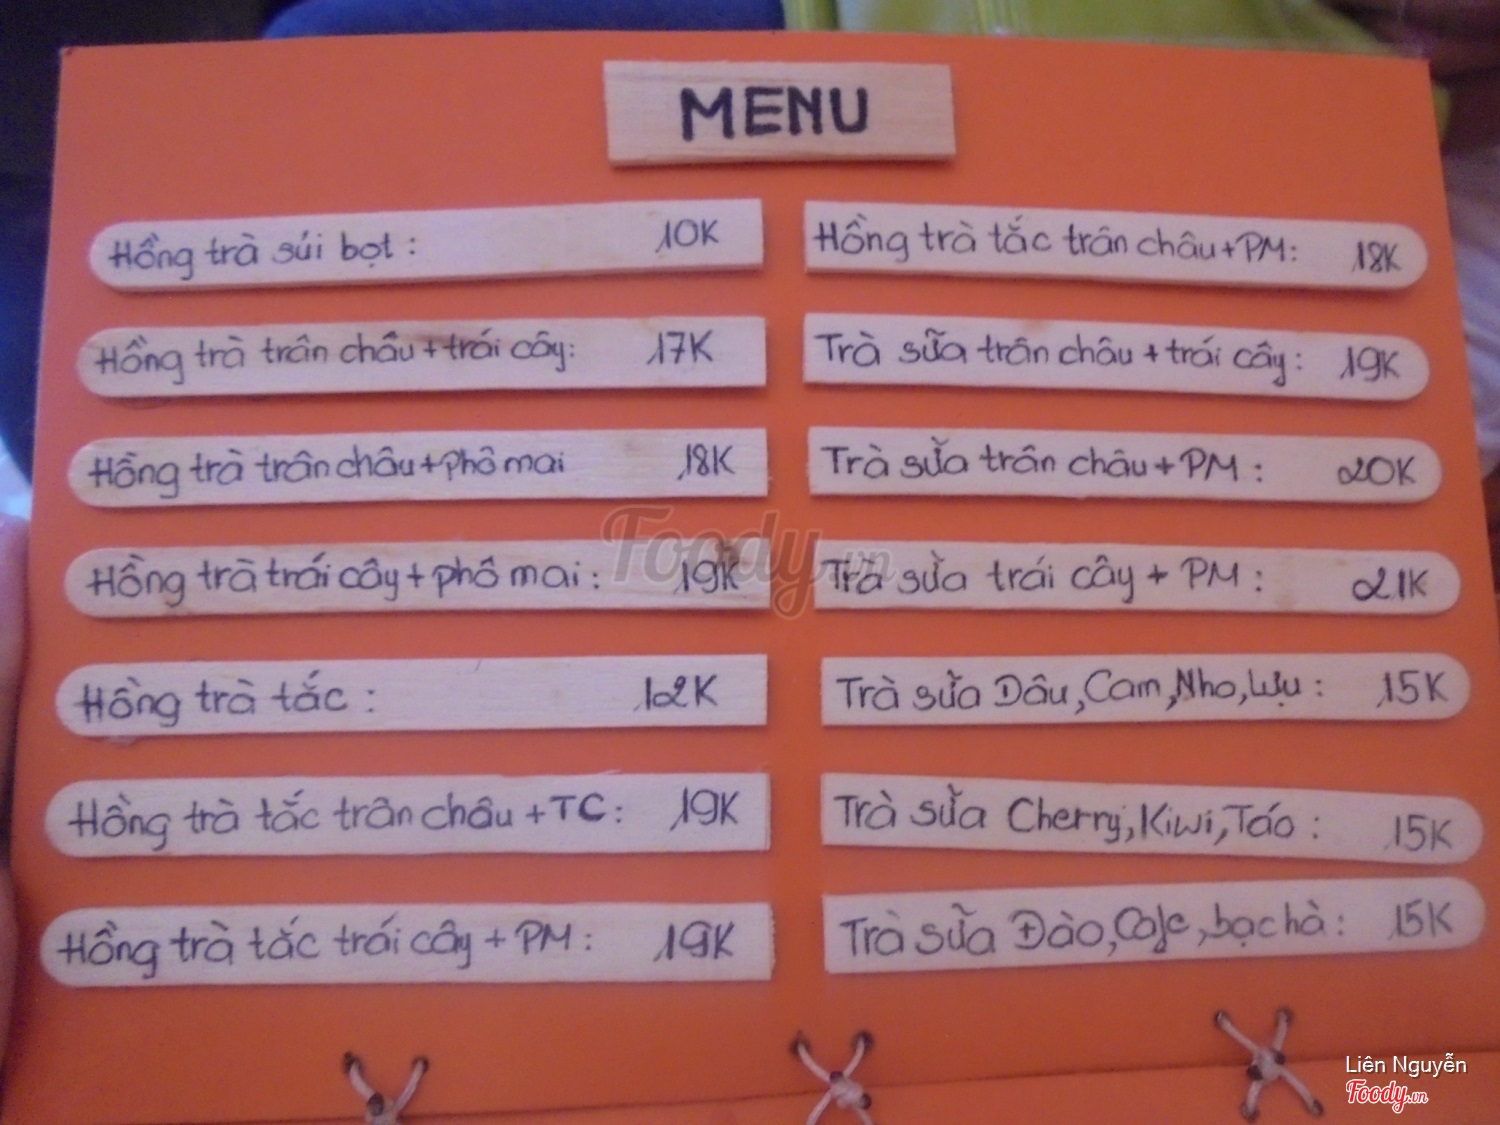 MENU
Hồng trà súi bọt : 10K
Hồng trà trân châu + trái cây: 17K
Hồng trà trân châu + phô mai 18K
Hồng trà trái cây + phô mai : 19K
Hồng trà tắc : 12K
Hồng trà tắc trân châu + TC : 19K
Hồng trà tắc trái cây + PM : 19K
Hồng trà tắc trân châu + PM: 18K
Trà sữa trân châu + trái cây : 19K
Trà sữa trân châu + PM : 20K
Trà sữa trái cây + PM : 21K
Trà sữa Dâu, Cam, Nho, Lựu : 15K
Trà sữa Cherry, Kiwi, Táo : 15K
Trà sữa Đào, Cafe, bạc hà : 15K
Foody.vn
Liên Nguyễn
Foody.vn